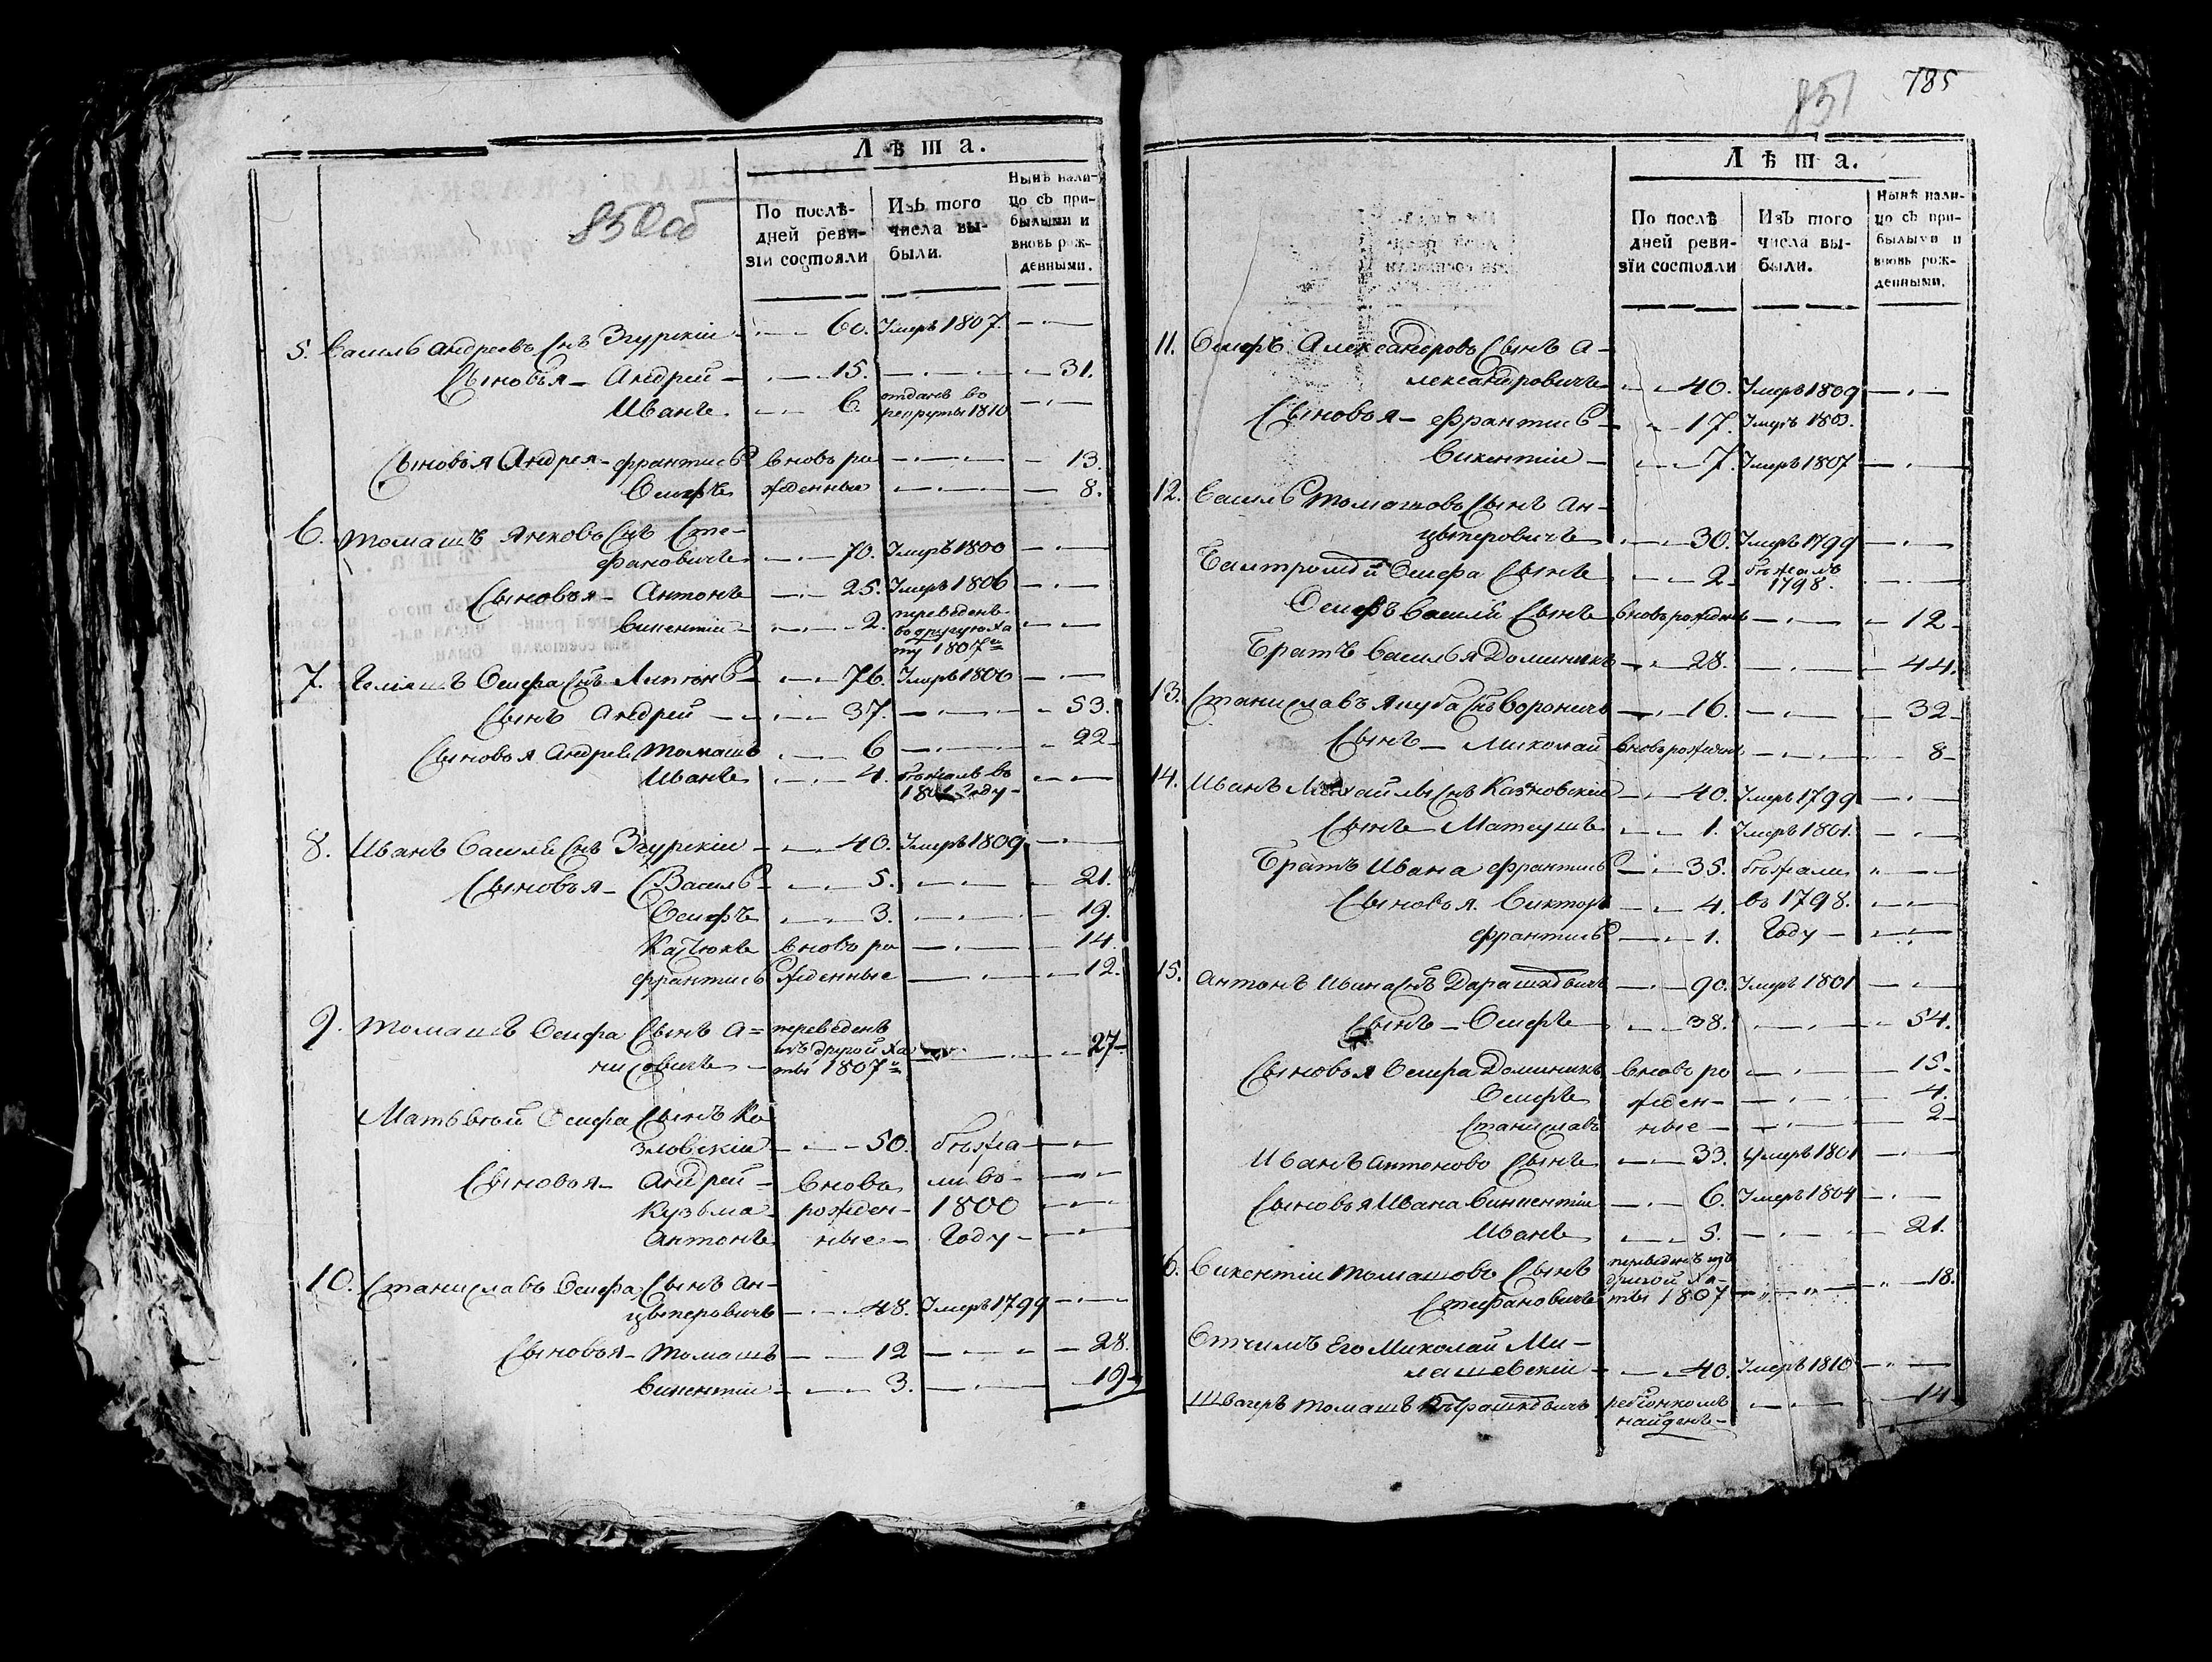 850об
Лѣта.
По послѣ-
дней реви-
зіи состояли
Изъ того
числа вы-
были.
Нынѣ нали-
цо съ при-
былыми и
вновь рож-
денными.
5. Василь Андреевъ Снъ Згурскій 60. Умеръ 1807.
Сыновья Андрей 15. 31.
Иванъ 6. отданъ во
рекруты 1810
Сыновья Андрея Францишъ вновь ро 13.
Осифъ жденныя 8.
6. Томашъ Янковъ Снъ Сте-
фановичъ 70. Умеръ 1800
Сыновья Антонъ 25. Умеръ 1806
Викентій 2. переведенъ
во другую ха
ту 1807
7. Осифа Снъ 76. Умеръ 1806
Сынъ Андрей 37. 53.
Сыновья Андрея Томашъ 6 22
Иванъ 4. бѣжалъ во
Году
8. Иванъ Василя Снъ Згурскій 40. Умеръ 1809
Сыновья Василь 5. 21.
Осифъ 3. 19.
вновь ро 14.
жденные 12.
9. Томашъ Осифа Сынъ А=
нисовичъ переведенъ
изъ другой ха
ты 1807 27
Осифа Сынъ Ко
зловскій 50. бѣжа
Сыновья Андрей вновь ли во
Кузьма рожден- 1800
Антонъ ные Году
10. Станиславъ Осифа Сынъ Ан-
цыперовичъ 48. Умеръ 1799
Сыновья Томашъ 12 28.
Викентій 3. 19
785
851
Лѣта.
По послѣ
дней реви-
зіи состояли
Изъ того
числа вы-
были.
Нынѣ нали-
цо съ при-
былыми и
вновь рож-
денными.
11. Осифъ Александровъ Сынъ А-
лександровичъ 40. Умеръ 1809
Сыновья 17. Умеръ 1803.
Викентій 7. Умеръ 1807
12. Василь Томашовъ Сынъ Ан-
цыперовичъ 30. Умеръ 1799
Осифа Сынъ 2. бѣжалъ
1798.
Осифъ Василя Сынъ вновь рожденъ 12
Братъ Василья Доминикъ 28. 44.
13. Станиславъ Якуба Снъ Вороничъ 16. 32
Сынъ Миколай вновь рожденъ 8
14. Иванъ Михайлы Снъ Казновскій 40. Умеръ 1799
Сынъ Матеушъ 1. Умеръ 1801.
Братъ Ивана 35. бѣжали
Сыновья Викторъ 4. въ 1798.
1. Году
15. Антонъ Ивана Снъ Дарашкевичъ 90. Умеръ 1801
Сынъ Осифъ 38. 54.
Сыновья Осифа Доминикъ вновь ро 15
Осифъ жден- 4.
Станиславъ ные 2
Иванъ Антоновъ Сынъ 33. Умеръ 1801
Сыновья Ивана Викентій 6. Умеръ 1804
Иванъ 5. 21.
16. Викентій Томашовъ Сынъ
Стефановичъ переведенъ изъ
другой ха-
ты 1807 18.
Отчимъ Его Миколай Ми-
лашевскій 40. Умеръ 1810
Швагеръ Томашъ
найденъ 14